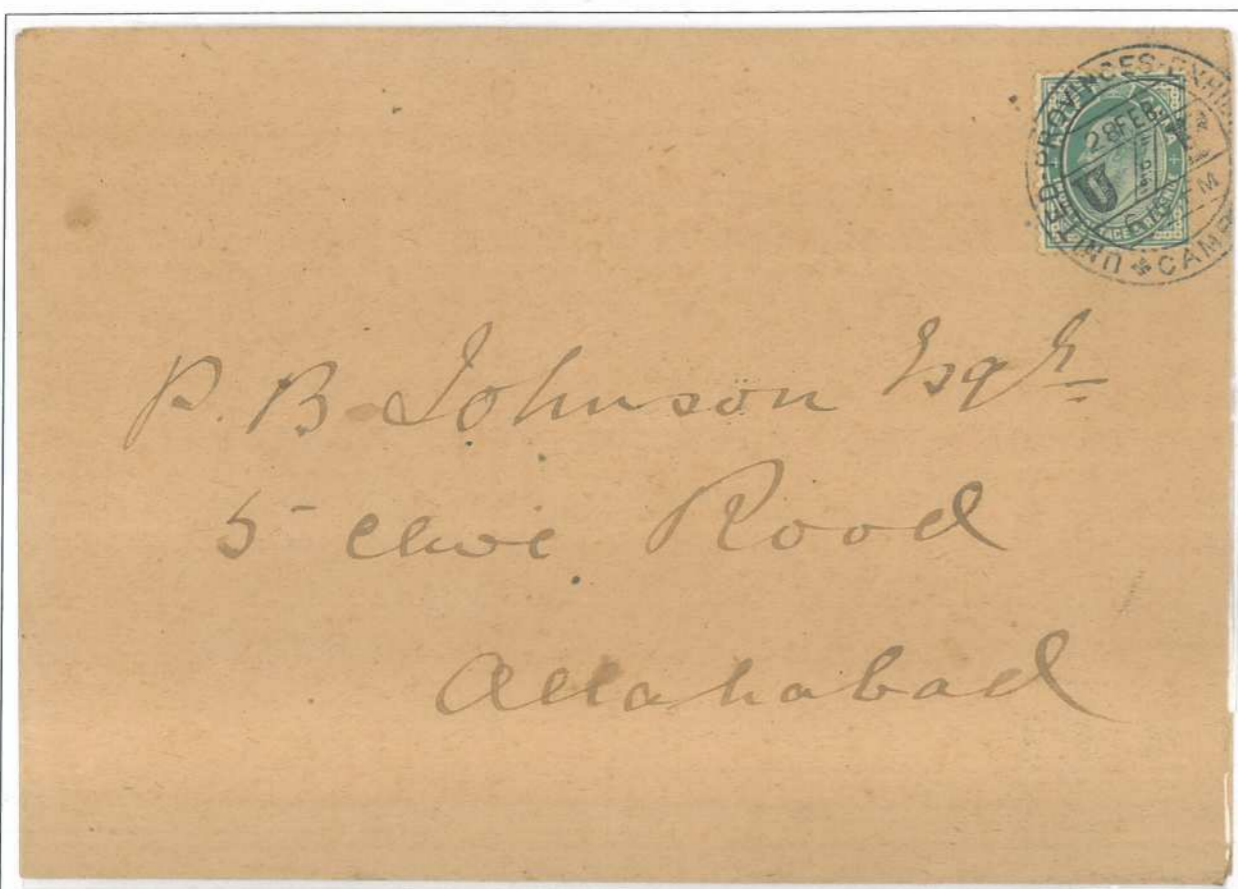 UNITED·PROVINCES·EXHI
CAMP
28 FEB
U
6
M
HALF ANNA
P. B. Johnson Esqr
5 Clive Road
Allahabad